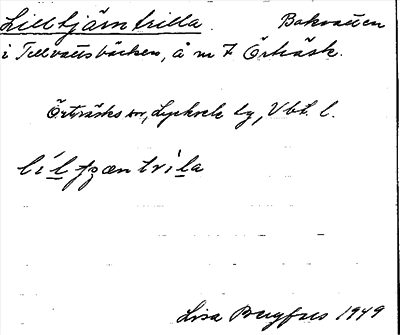 Lilltjärntrilla. Bakvatten
i Tellvattsbäcken, å m f Örträsk.
Örträsks sn, Lycksele lg, Vbt. l.
Lisa Bergfors 1949